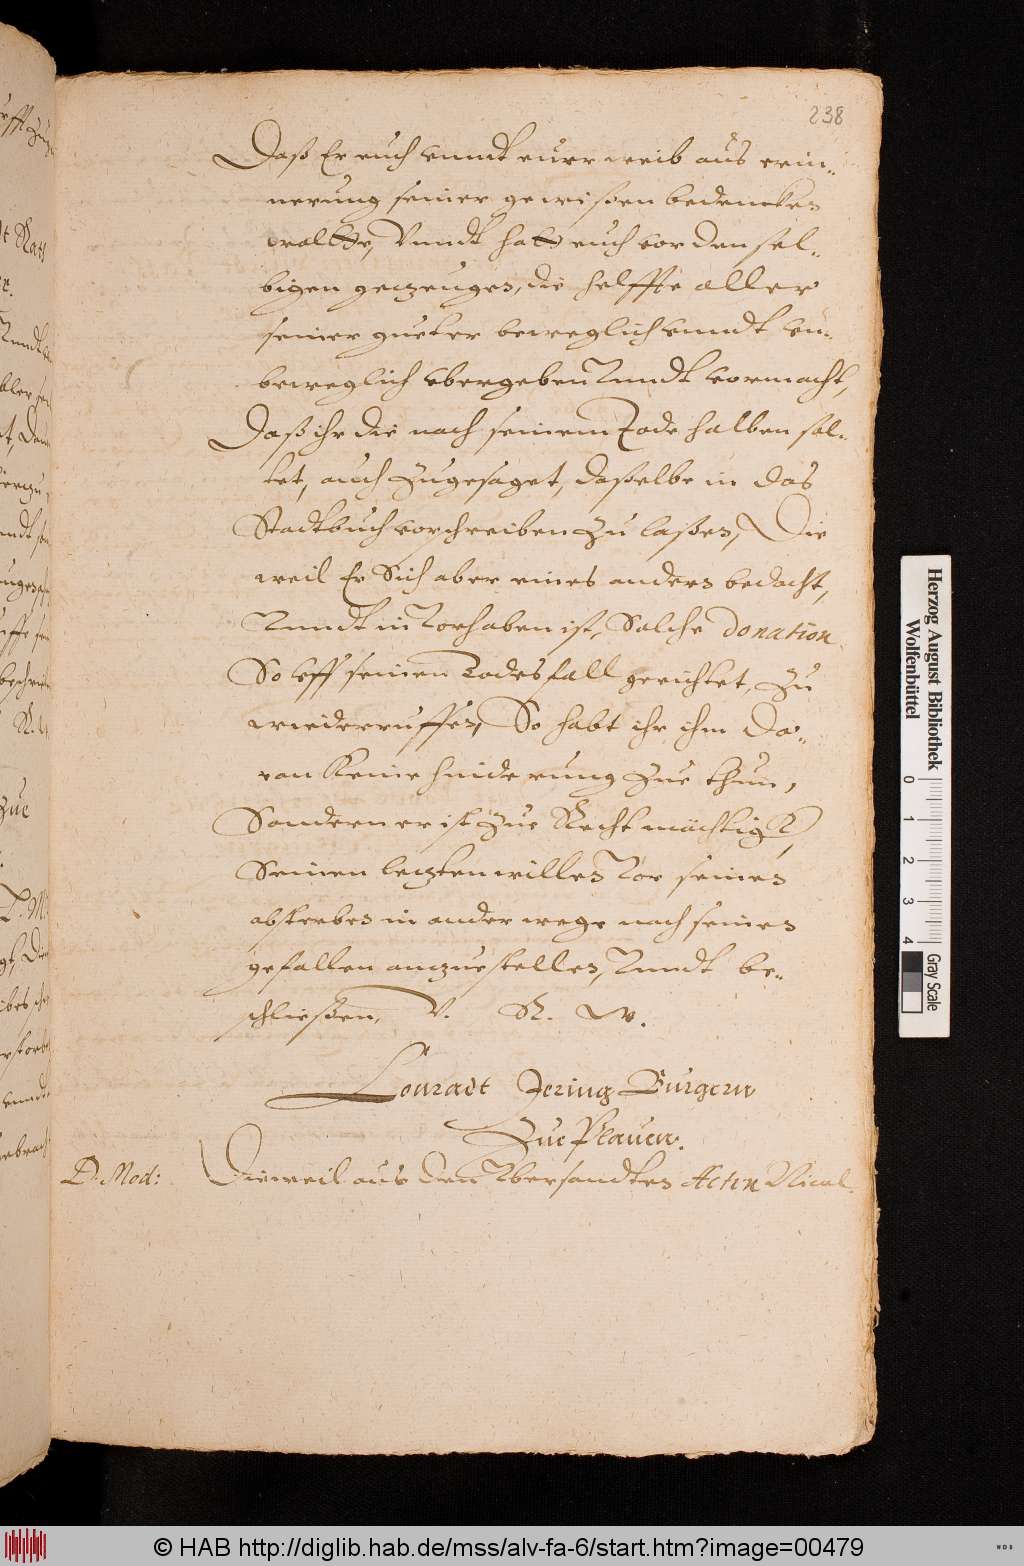 238
Daß Er euch vnndt eurr weib aus erin„
nerung seiner gewißen bedencken
wolltte, Vnndt hatt euch vor den sel„
bigen gezeugen, die helffte aller
seiner guetter beweglich vnndt vn„
beweglich vbergeben Vnndt vormacht,
Daß ihr die nach seinem Tode halben sol„
tet, auch Zugesaget, daßelbe in das
Stadtbuch vorschreiben Zu laßen, Die
weil Er Sich aber eines anders bedacht,
Vnndt in Vorhaben ist, Solche donation
So vff seinen Todesfall gerichtet, Zu
wiederruffen, So habt ihr ihm da„
ran Keine hinderung Zue thun,
Sondern er ist Zue Recht mächtigk,
Seinen leczten willen Vor seines
absterben in ander wege nach seines
gefallen anzuestellen, Vnndt be„
schließen, V. R. W.
Conradt Jering Burgern
Zue Plauen.
D. Mod: Dieweil aus den Vbersandten Acten Nicol
Herzog August Bibliothek
Wolfenbüttel
0 1 2 3 4
Gray Scale
© HAB http://diglib.hab.de/mss/alv-fa-6/start.htm?image=00479